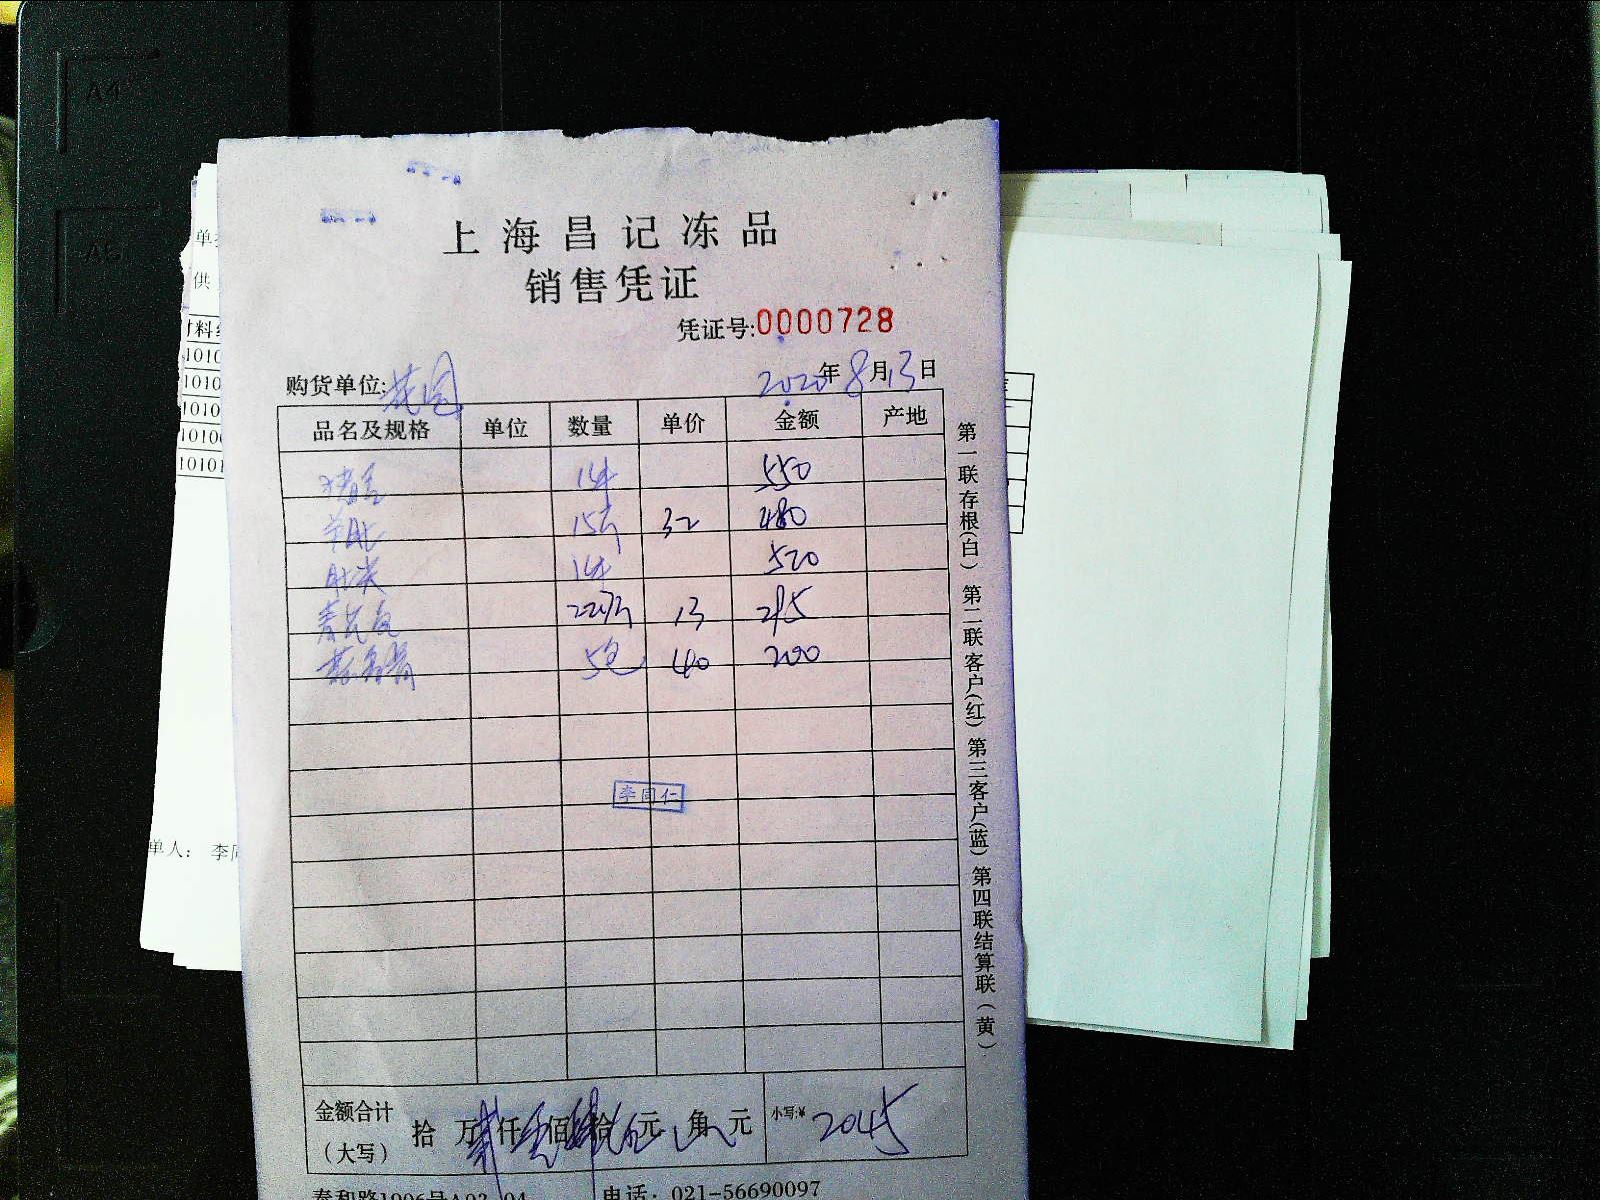 上海昌记冻品
销售凭证
凭证号:0000728
购货单位:花园 2020年8月13日
品名及规格 单位 数量 单价 金额 产地
1件 550
羊肚 15斤 32 480
肚尖 1件 520
13 295
5包 40 200
李同仁
金额合计
(大写) 拾 万贰仟零佰肆拾伍元 角 元 小写:¥ 2045
泰和路1906号A03 04 电话: 021-56690097
第一联存根(白) 第二联客户(红) 第三客户(蓝) 第四联结算联(黄)
单
供
材料
1010
1010
1010
10100
10101
单人: 李同